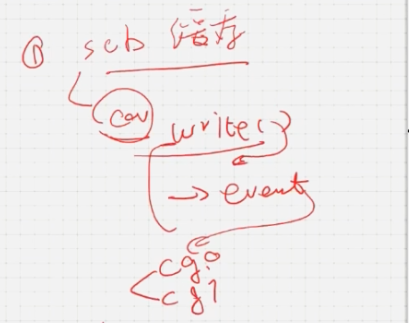 ① scb 储存
cov write()
→ event
cg0
cg1